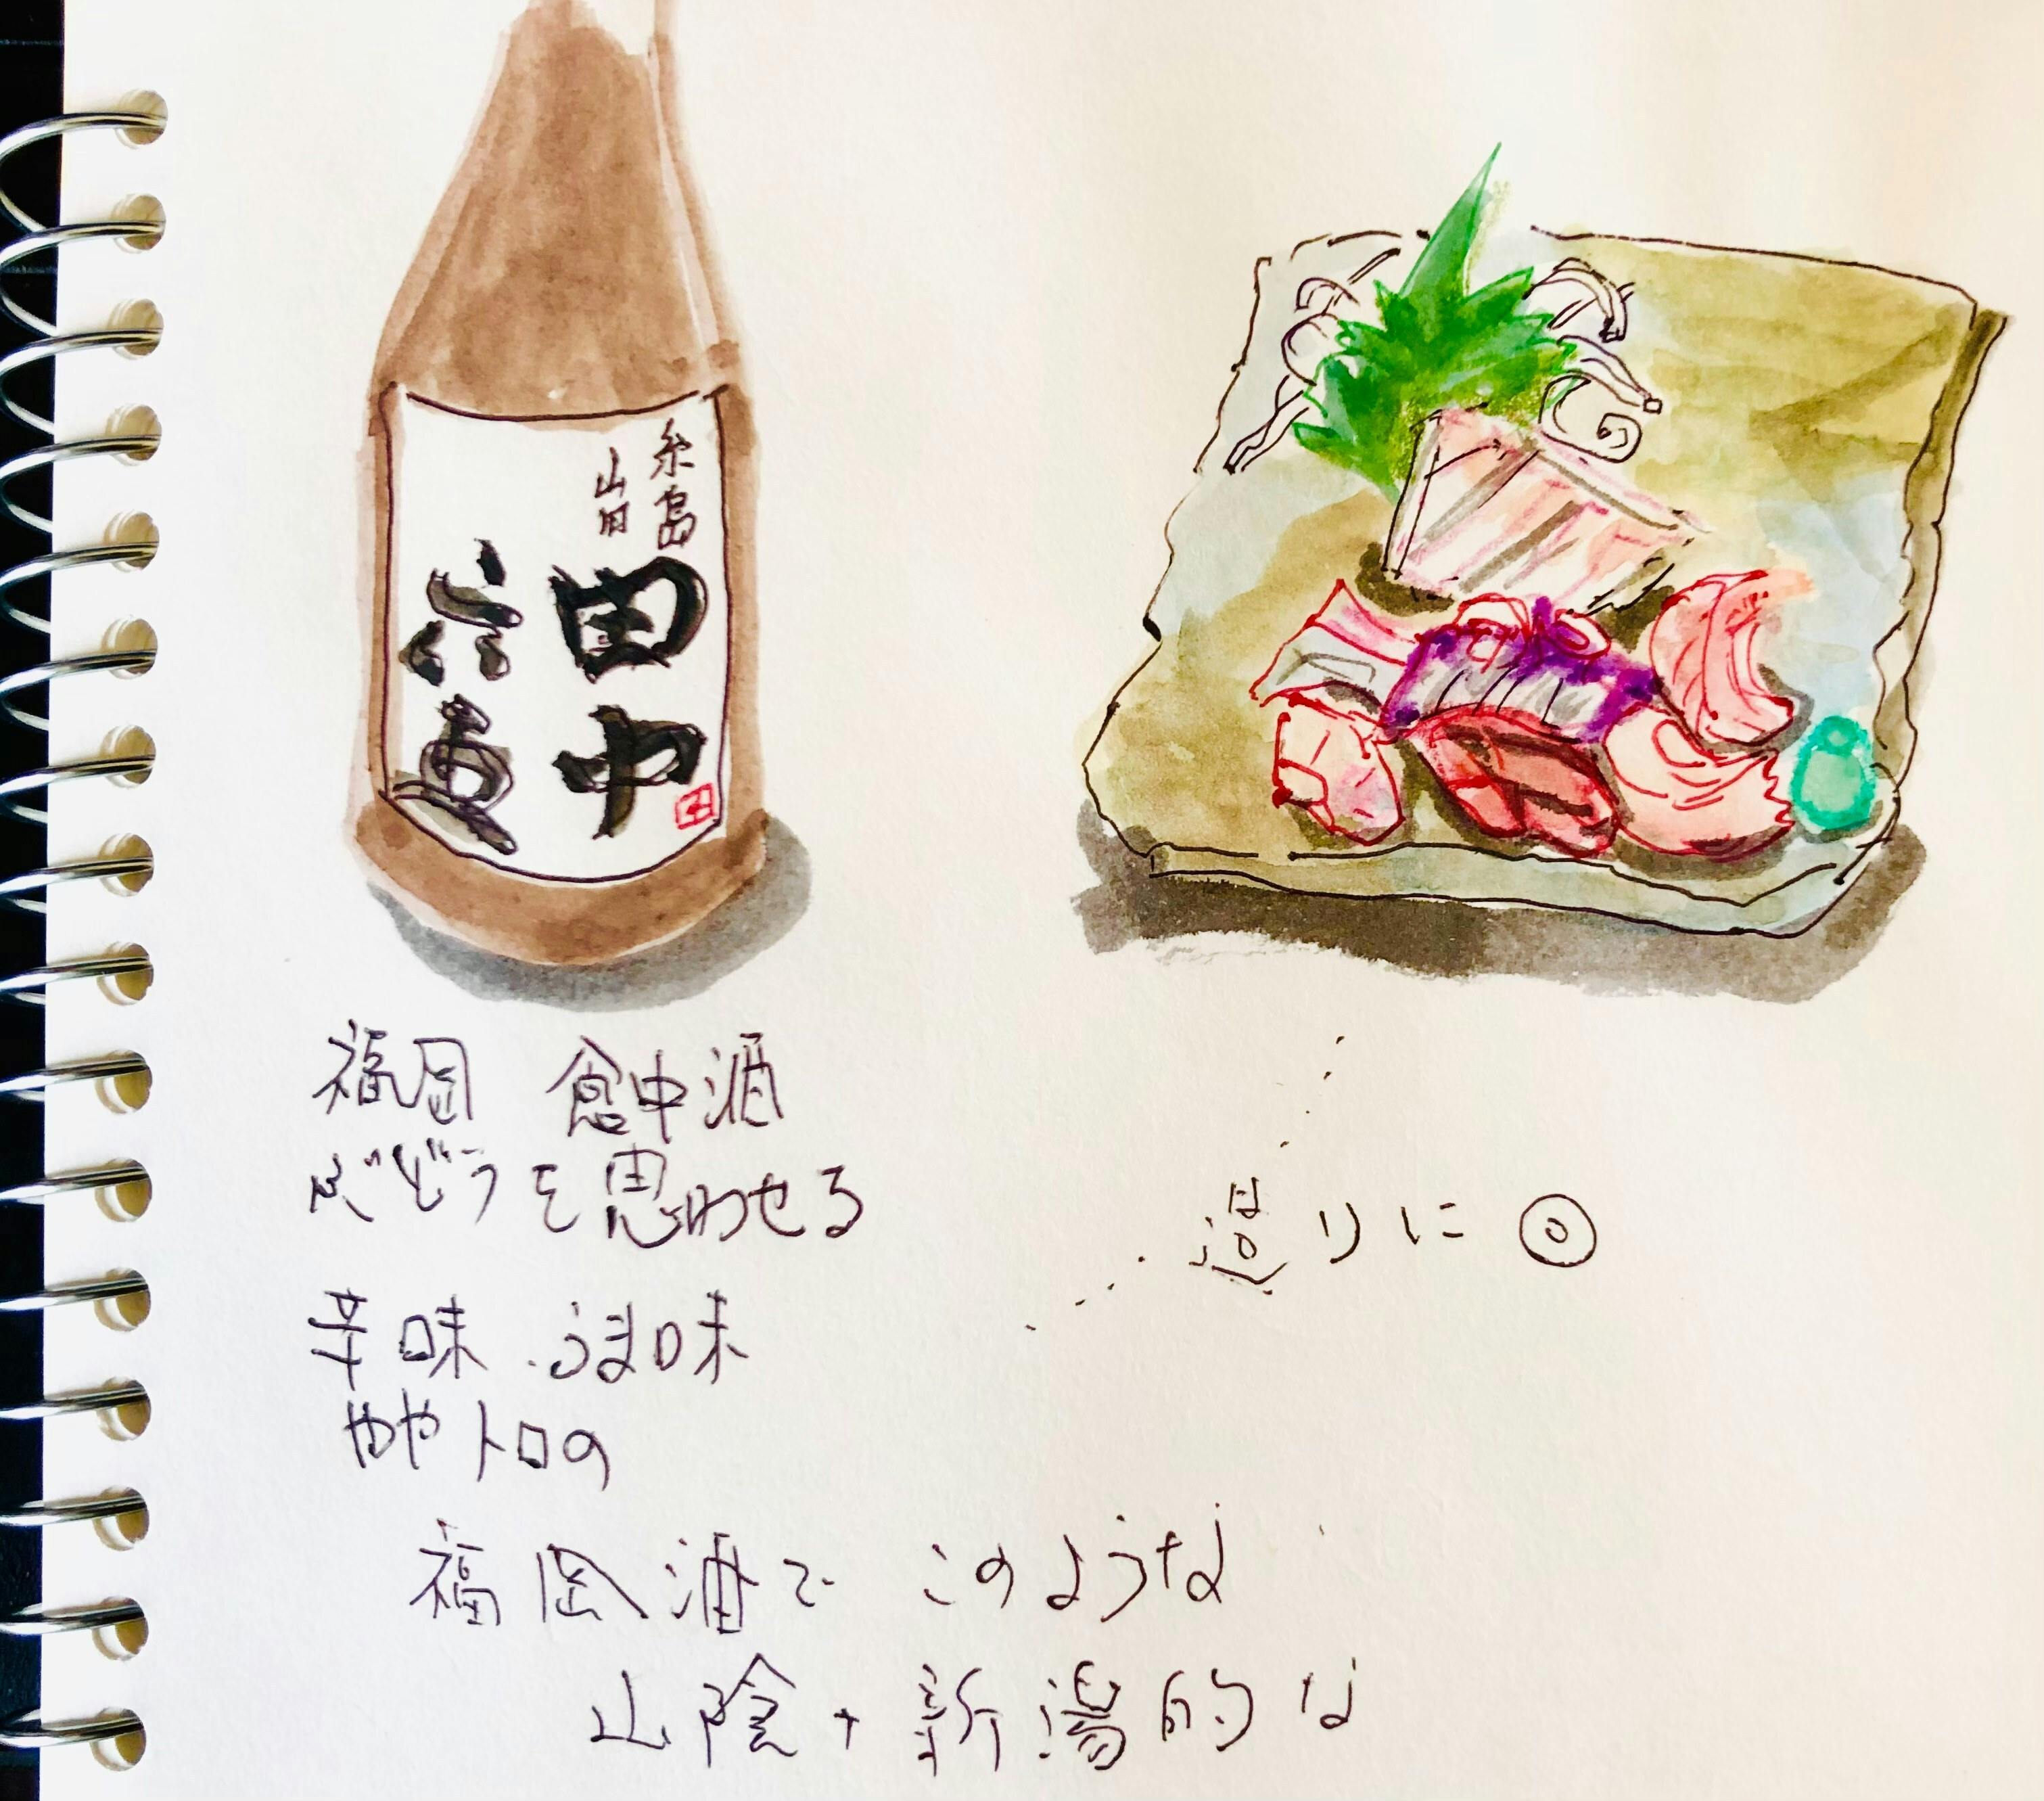 糸島
山田
田中
六五
福岡 食中酒
ぶどうを思わせる
辛味・うま味
ややトロの
造りに◎
福岡酒で このような
山陰+新潟的な